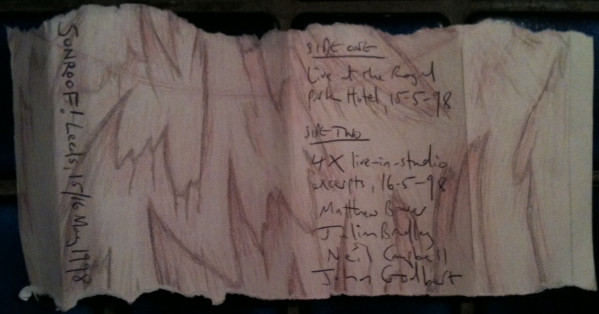 SUNROOF! Leeds, 15/16 May 1998
SIDE ONE
Live at the Royal
Park Hotel, 15-5-98
SIDE TWO
4X live-in-studio
excerpts, 16-5-98
Matthew Bower
Julian Bradley
Neil Campbell
John Godbert